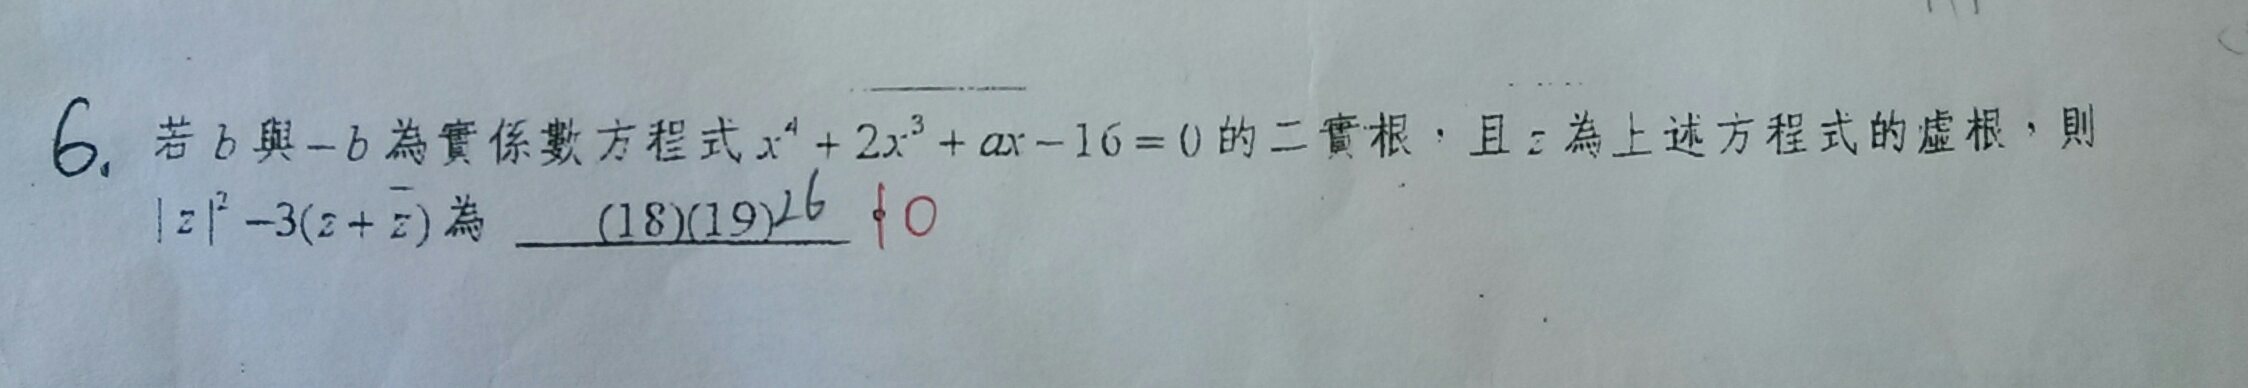 6. 若 b 與 −b 為實係數方程式 x⁴ + 2x³ + ax − 16 = 0 的二實根，且 z 為上述方程式的虛根，則
|z|² − 3(z + z̄) 為 (18)(19) 26 10